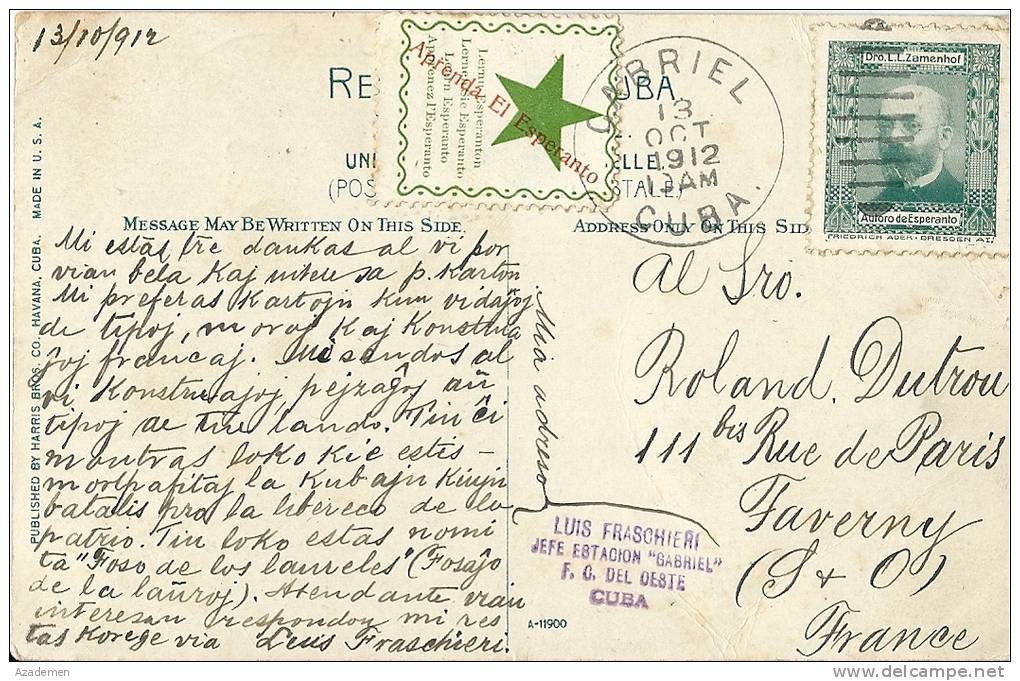 13/10/912
Lernu Esperanton
Lernen Sie Esperanto
Learn Esperanto
Apprenez l'Esperanto
Aprenda El Esperanto
GABRIEL
13
OCT
1912
10AM
CUBA.
Dro. L.L. Zamenhof
Autoro de Esperanto
FRIEDRICH ADER - DRESDEN A.I.
RE UBA.
UNI ELLE.
(POS STALE)
MESSAGE MAY BE WRITTEN ON THIS SIDE
ADDRESS ONLY ON THIS SID
PUBLISHED BY HARRIS BROS. CO., HAVANA, CUBA. MADE IN U. S. A.
Mi estas tre dankas al vi por
vian bela Kaj interesa p. Karton
Mi preferas Kartojn Kun vidaĵoj
de tipoj, moroj Kaj Konstrua
ĵoj francaj. Mi sendos al
vi Konstruajoj, pejzaĝoj aŭ
tipoj de tiu lando. Tiu ĉi
montras loko Kie estis
mortpafitaj la Kubajn Kiujn
batalis pro la libereco de la
patrio. Tiu loko estas nomi
ta "Foso de los laureles" (Fosaĵo
de la laŭroj). Atendante vian
interesan respondon mi res
tas Korege via Luis Fraschieri.
Mia adreso
LUIS FRASCHIERI
JEFE ESTACION "GABRIEL"
F. C. DEL OESTE
CUBA
A-11900
Al Sro.
Roland. Dutrou
111 bis Rue de Paris
Taverny
(S + O)
France
Azademen
www.delcampe.net